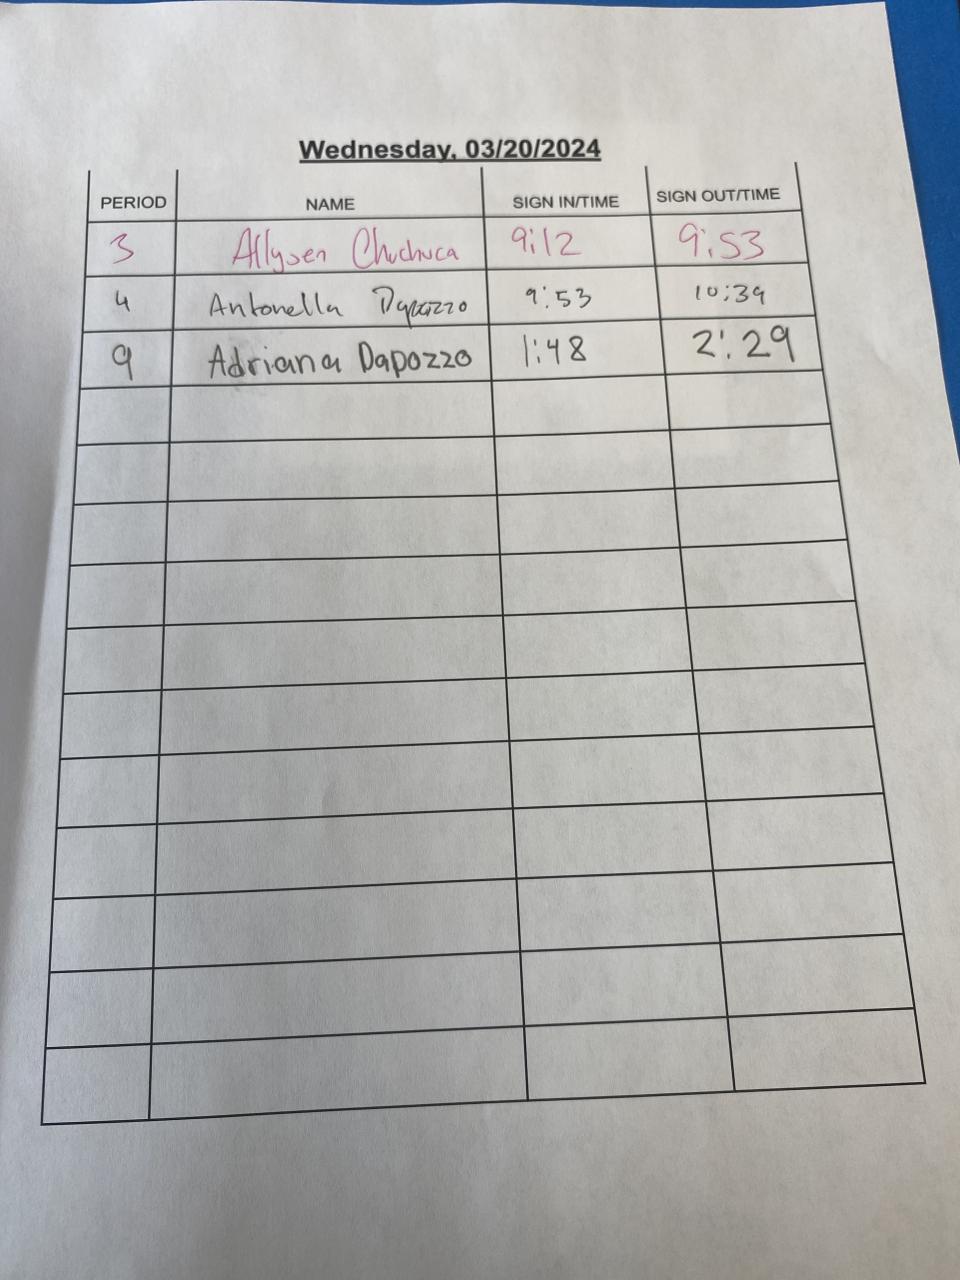 Wednesday, 03/20/2024
PERIOD NAME SIGN IN/TIME SIGN OUT/TIME
3 Allysen Chuchuca 9:12 9:53
4 Antonella Dapozzo 9:53 10:39
9 Adriana Dapozzo 1:48 2:29